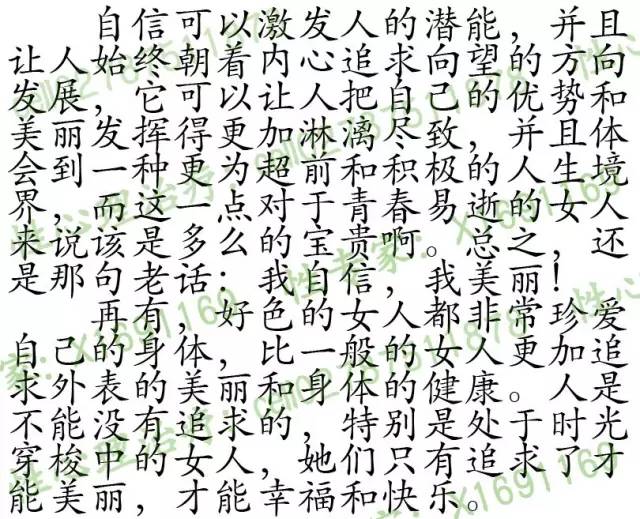 自信可以激发人的潜能，并且
让人始终朝着内心追求向望的方向
发展，它可以让人把自己的优势和
美丽发挥得更加淋漓尽致，并且体
会到一种更为超前和积极的人生境
界，而这一点对于青春易逝的女人
来说该是多么的宝贵啊。总之，还
是那句老话：我自信，我美丽！
再有，好色的女人都非常珍爱
自己的身体，比一般的女人更加追
求外表的美丽和身体的健康。人是
不能没有追求的，特别是处于时光
穿梭中的女人，她们只有追求了才
能美丽，才能幸福和快乐。